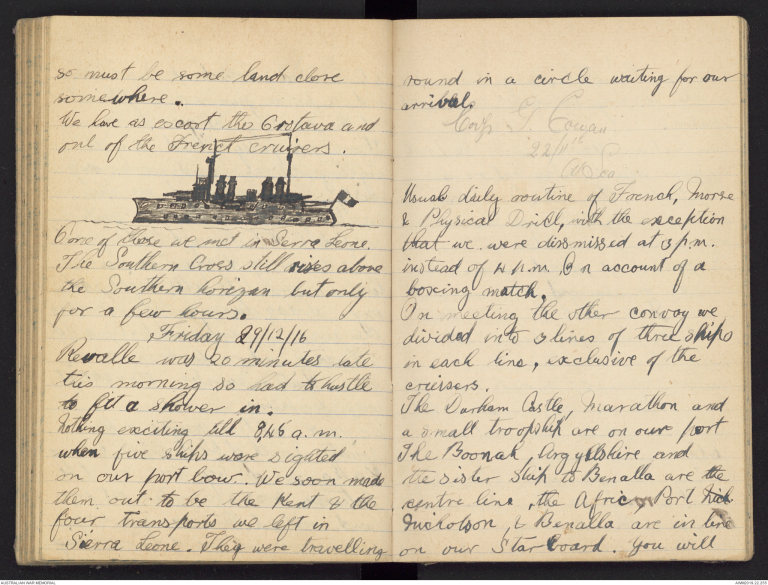 so must be some land close
somewhere.
We have as escort the Orotava and
one of the French cruisers.
one of those we met in Sierra Leone.
The Southern Cross still rises above
the Southern horezan but only
for a few hours.
Friday 29/12/16
Revalle was 20 minutes late
this morning so had to hustle
to fit a shower in.
Nothing exciting till 9,45 a.m.
when five ships were sighted
on our port bow. We soon made
them out to be the Kent & the
four transports we left in
Sierra Leone. They were travelling
round in a circle waiting for our
arrival.
Corp Cowan
22/11
At Sea
Usual daily routine of French, Morse
& Physical Drill, with the exception
that we were dismissed at 3 p.m.
instead of 4 p.m. On account of a
boxing match.
On meeting the other convoy we
divided into 3 lines of three ships
in each line, exclusive of the
cruisers.
The Durham Castle, Marathon and
a small troopship are on our port
The Boonah, Argyllshire and
the sister ship to Benalla are the
centre line, the Africa, Port
Nicholson, & Benalla are in line
on our Starboard. You will
AUSTRALIAN WAR MEMORIAL